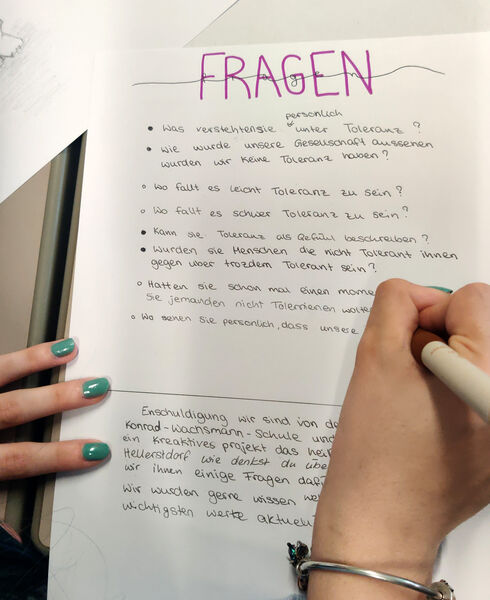 FRAGEN
fragen
persönlich
Was verstehtensie unter Toleranz?
Wie wurde unsere Gesellschaft aussehen
wurden wir keine Toleranz haben?
Wo fällt es leicht Toleranz zu sein?
Wo fällt es schwer Toleranz zu sein?
Kann sie Toleranz als Gefühl beschreiben?
Wurden sie Menschen die nicht Tolerant ihnen
gegen über trozdem Tolerant sein?
Hatten sie schon mal einen mome
Sie jemanden nicht Tolerrieren wollte
Wo sehen Sie persönlich, dass unsere
Enschuldigung wir sind von de
Konrad-Wachsmann-Schule und
ein kreaktives projekt das heiß
Hellerstdorf wie denkst du übe
wir ihnen einige Fragen dafü
Wir wurden gerne wissen we
wichtigsten werte aktuell